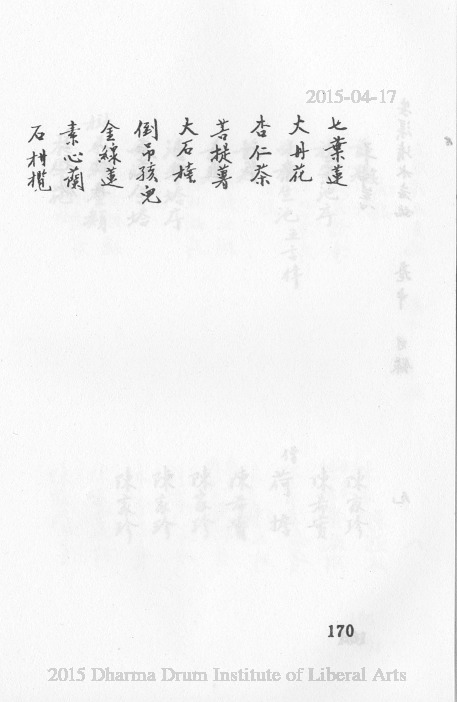 2015-04-17
七葉蓮
大丹花
杏仁茶
菩提薯
大石棱
倒吊孩兒
金線蓮
素心蘭
石柑欖
170
2015 Dharma Drum Institute of Liberal Arts